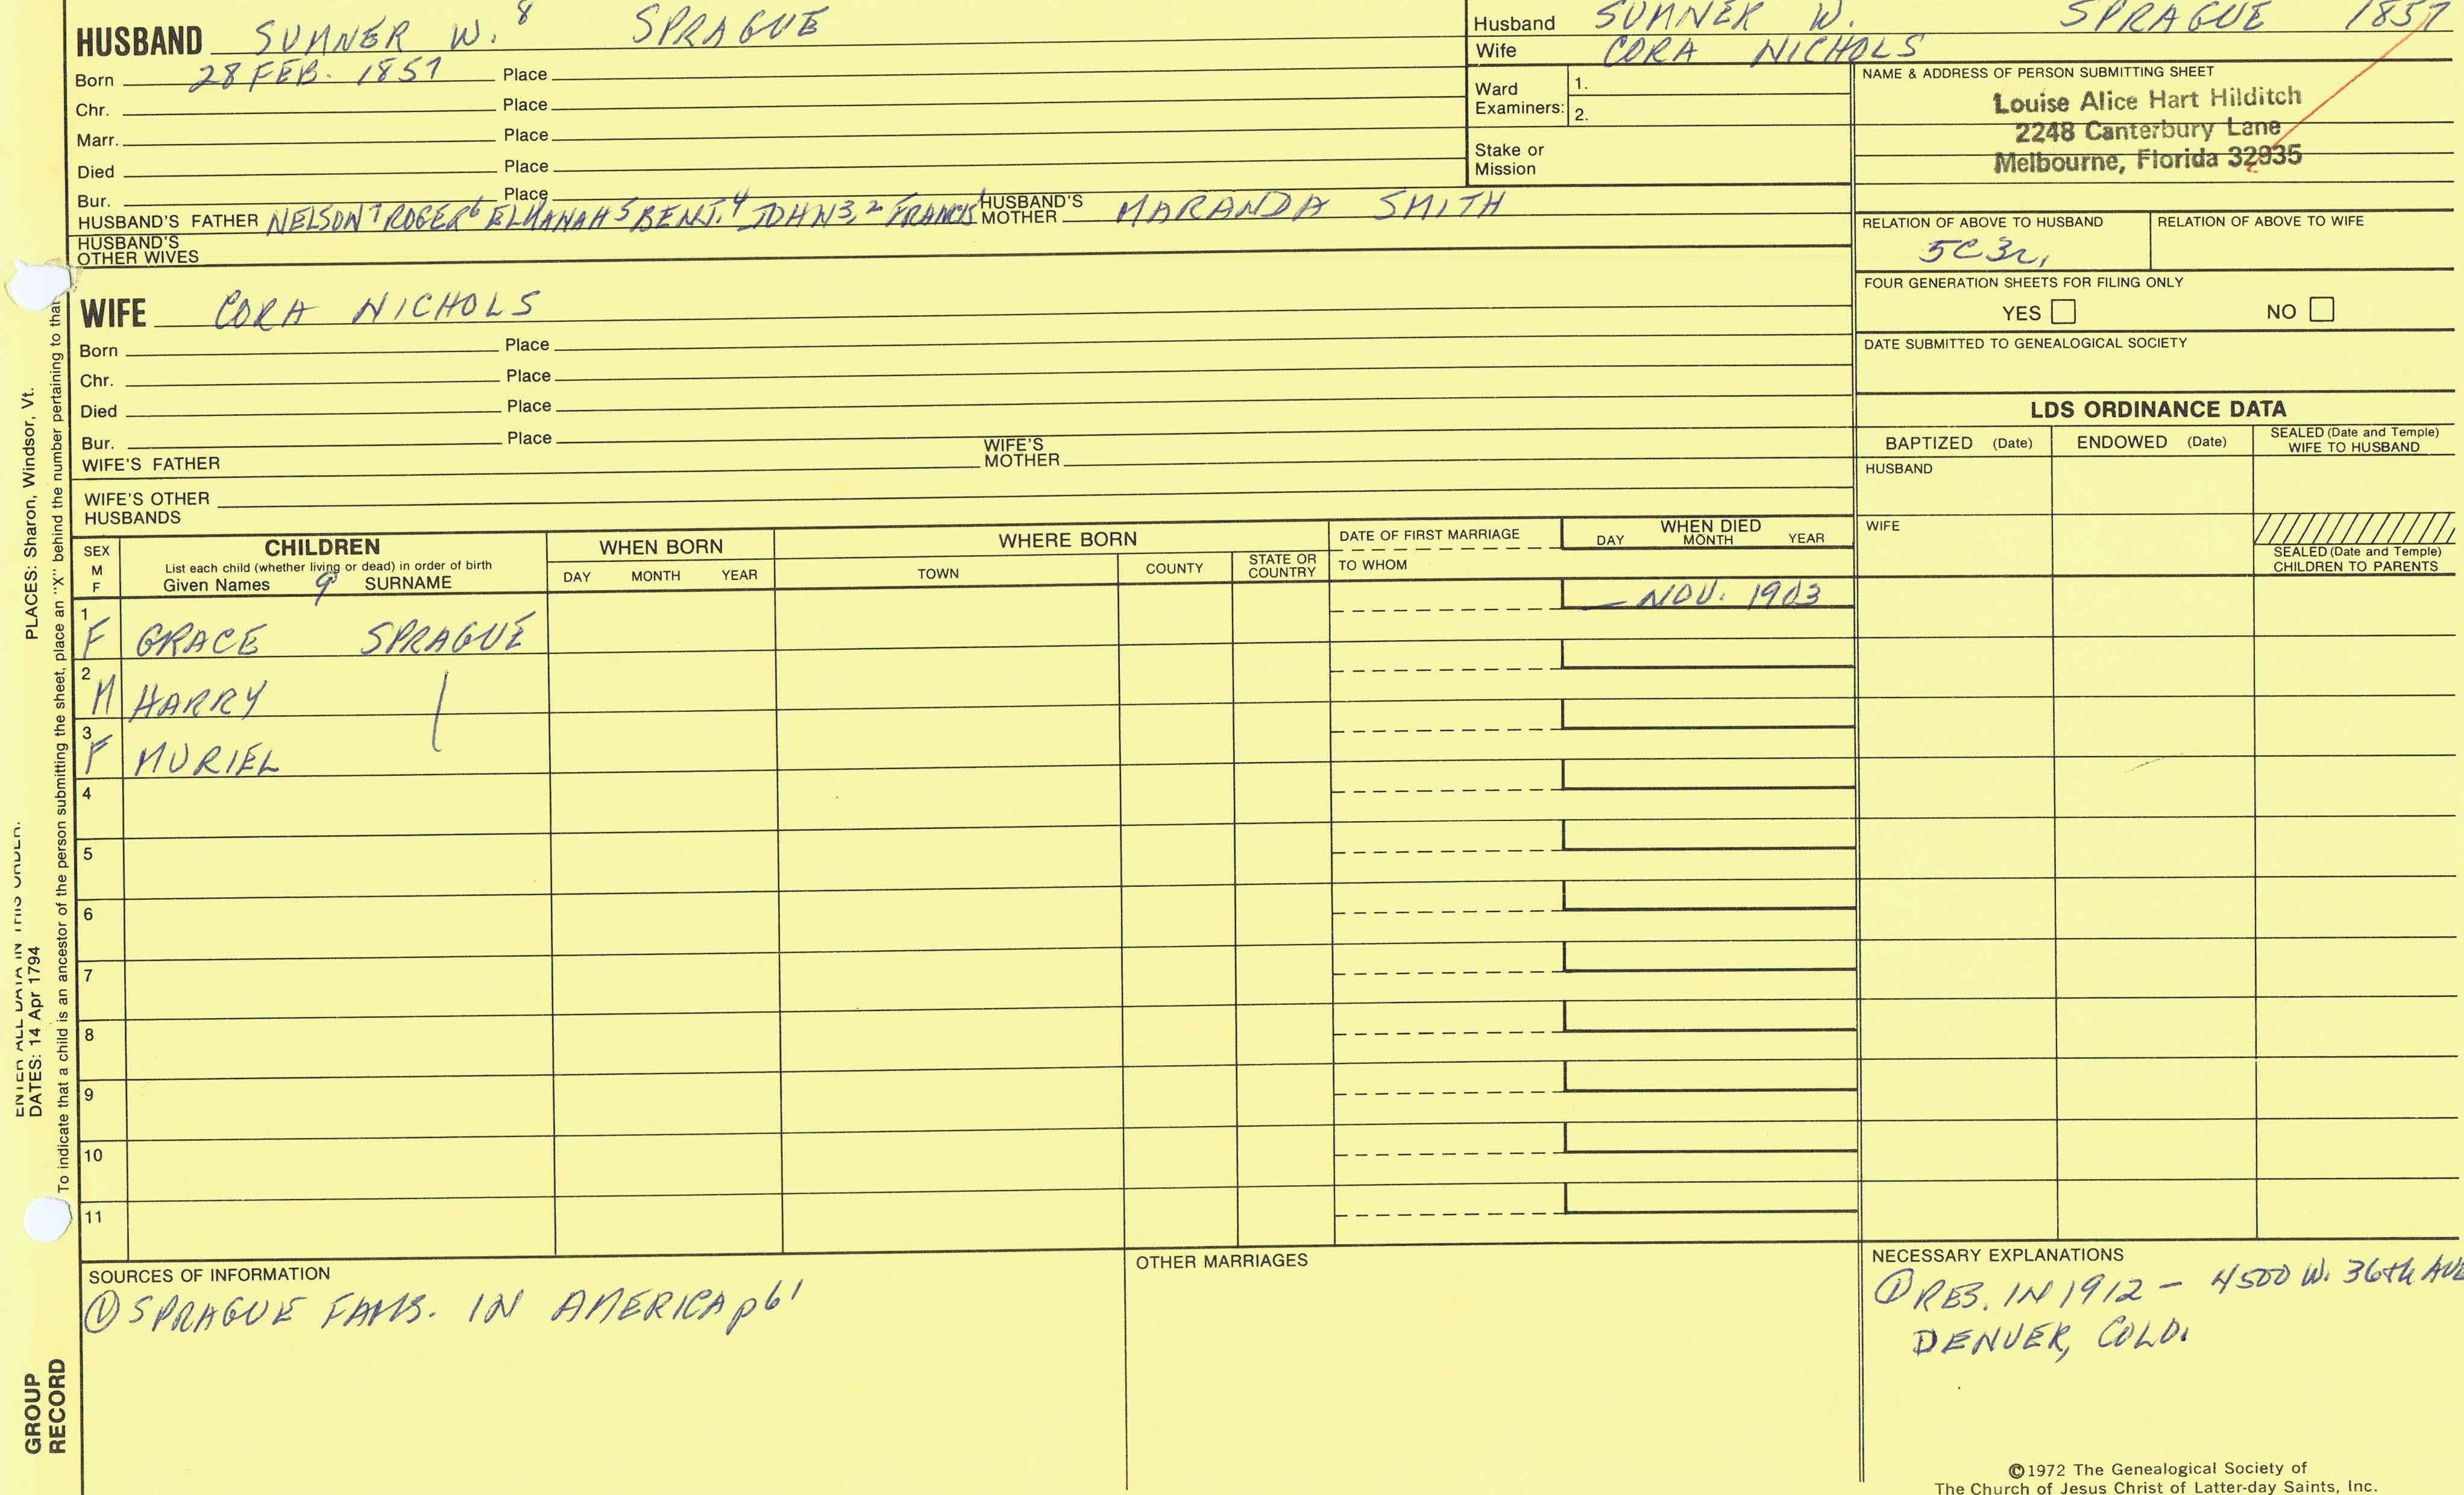 HUSBAND SUMNER W. 8 SPRAGUE
Born 28 FEB. 1857 Place
Chr. Place
Marr. Place
Died Place
Bur. Place
HUSBAND'S FATHER NELSON 7 ROGER 6 ELKANAH 5 BENJ. 4 JOHN 3, 2 FRANCIS 1 HUSBAND'S MOTHER MARANDA SMITH
HUSBAND'S OTHER WIVES
Husband SUMNER W. SPRAGUE 1857
Wife CORA NICHOLS
Ward Examiners: 1.
2.
Stake or Mission
NAME & ADDRESS OF PERSON SUBMITTING SHEET
Louise Alice Hart Hilditch
2248 Canterbury Lane
Melbourne, Florida 32935
RELATION OF ABOVE TO HUSBAND RELATION OF ABOVE TO WIFE
5C3r,
FOUR GENERATION SHEETS FOR FILING ONLY
YES NO
DATE SUBMITTED TO GENEALOGICAL SOCIETY
WIFE CORA NICHOLS
Born Place
Chr. Place
Died Place
Bur. Place
WIFE'S FATHER WIFE'S MOTHER
WIFE'S OTHER HUSBANDS
LDS ORDINANCE DATA
BAPTIZED (Date) ENDOWED (Date) SEALED (Date and Temple) WIFE TO HUSBAND
HUSBAND
WIFE
SEALED (Date and Temple) CHILDREN TO PARENTS
SEX M F
CHILDREN
List each child (whether living or dead) in order of birth
Given Names 9 SURNAME
WHEN BORN
DAY MONTH YEAR
WHERE BORN
TOWN COUNTY STATE OR COUNTRY
DATE OF FIRST MARRIAGE
TO WHOM
WHEN DIED
DAY MONTH YEAR
1 F GRACE SPRAGUE — NOV. 1903
2 M HARRY
3 F MURIEL
4
5
6
7
8
9
10
11
SOURCES OF INFORMATION
① SPRAGUE FAMS. IN AMERICA p61
OTHER MARRIAGES
NECESSARY EXPLANATIONS
① RES. IN 1912 - 4500 W. 36th AVE
DENVER, COLO.
©1972 The Genealogical Society of
The Church of Jesus Christ of Latter-day Saints, Inc.
ENTER ALL DATA IN THIS ORDER:
DATES: 14 Apr 1794 PLACES: Sharon, Windsor, Vt.
To indicate that a child is an ancestor of the person submitting the sheet, place an "X" behind the number pertaining to that
GROUP
RECORD